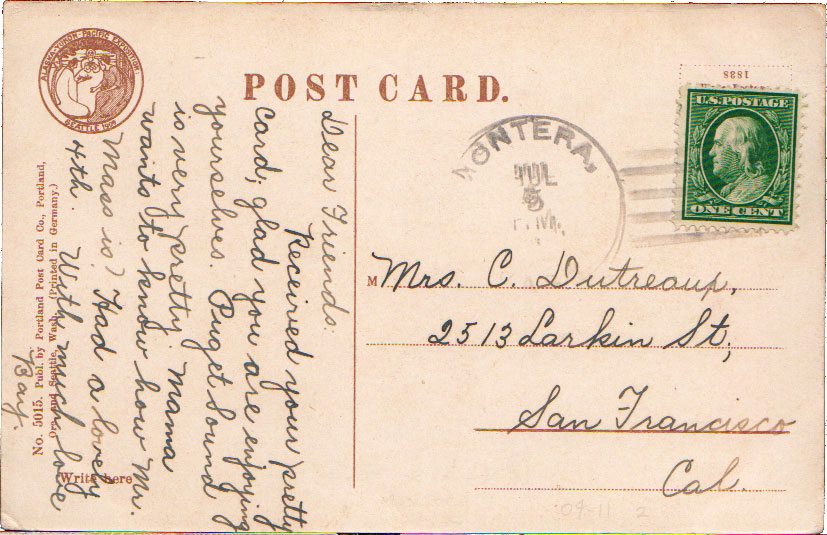 ALASKA-YUKON-PACIFIC EXPOSITION
SEATTLE 1909
POST CARD.
1838
U.S. POSTAGE
ONE CENT
MONTERA,
JUL
5
P.M.
Dear Friends:
Received your pretty
card; glad you are enjoying
yourselves. Puget Sound
is very pretty. Mama
wants to know how Mr.
Mass is) Had a lovely
4th. With much love
Bay.
M
Mrs. C. Dutreaux,
2513 Larkin St,
San Francisco
Cal.
No. 5015. Publ. by Portland Post Card Co., Portland,
Ore. and Seattle, Wash. (Printed in Germany.)
Write here
09-11 2